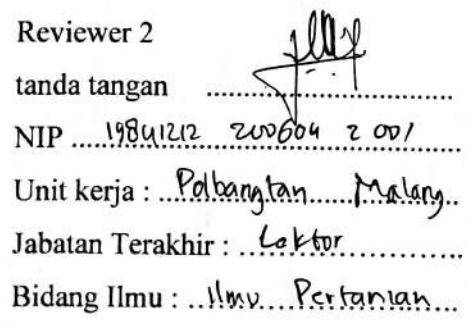 Reviewer 2
tanda tangan ........................
NIP ....19841212 200604 2 001
Unit kerja : ...Polbangtan......Malang..
Jabatan Terakhir : ...Lektor...............
Bidang Ilmu : ...Ilmu....Pertanian........